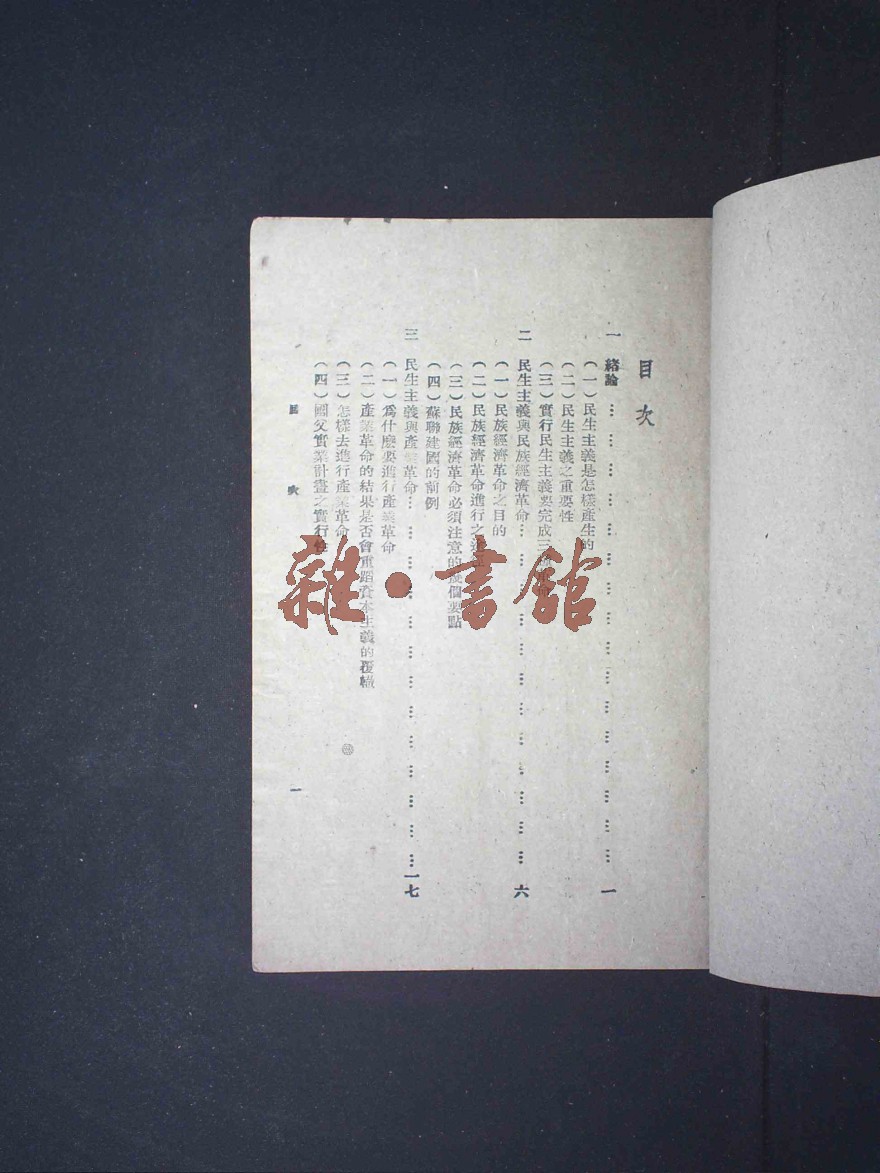 目次
一 緒論 … … … … … … … … … … … … … … … 一
（一）民生主義是怎樣產生的
（二）民生主義之重要性
（三）實行民生主義要完成三
二 民生主義與民族經濟革命 … … … … … … … … … … … … 六
（一）民族經濟革命之目的
（二）民族經濟革命進行之
（三）民族經濟革命必須注意的幾個要點
（四）蘇聯建國的前例
三 民生主義與產業革命 … … … … … … … … … … … … 一七
（一）爲什麽要進行產業革命
（二）產業革命的結果是否會重蹈資本主義的覆轍
（三）怎樣去進行產業革命
（四）國父實業計畫之實行性
目 次 一
雜·書館